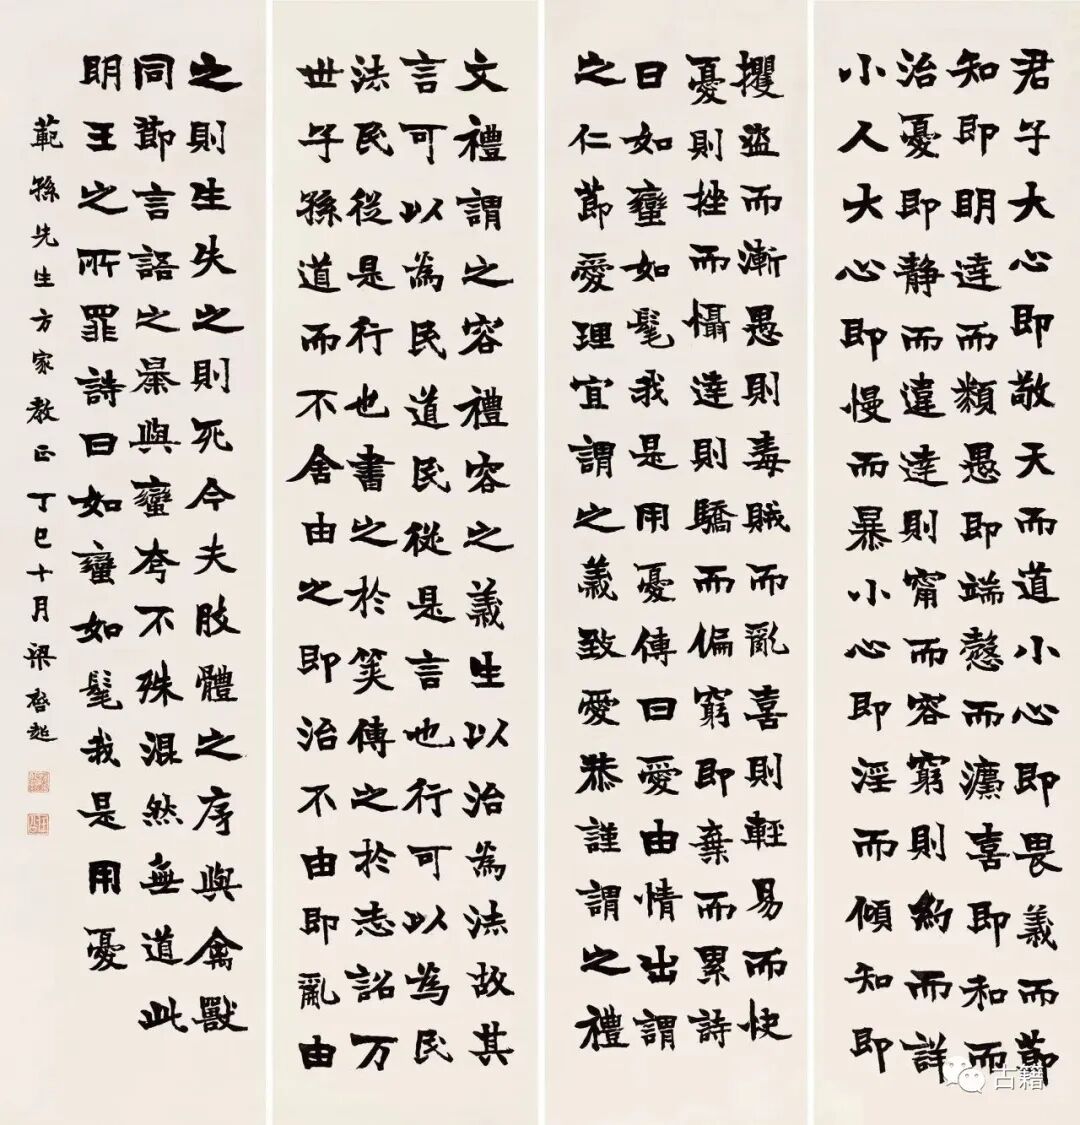 君子大心即敬天而道小心即畏義而節
知即明達而類愚即端愨而灋喜即和而
治憂即静而違達則甯而容窮則約而詳
小人大心即慢而暴小心即淫而傾知即
攫盜而漸愚則毒賊而亂喜則輕易而快
憂則挫而懾達則驕而偏窮即棄而累詩
曰如蠻如髦我是用憂傳曰愛由情出謂
之仁節愛理宜謂之義致愛恭謹謂之禮
文禮謂之容禮容之義生以治為法故其
言可以為民道民從是言也行可以為民
法民從是行也書之於筴傳之於志詔万
世子孫道而不舍由之即治不由即亂由
之則生失之則死今夫肢體之序與禽獸
同節言語之暴與蠻夸不殊混然無道此
明王之所罪詩曰如蠻如髦我是用憂
範孫先生方家教正 丁巳十月梁啓超
古籍